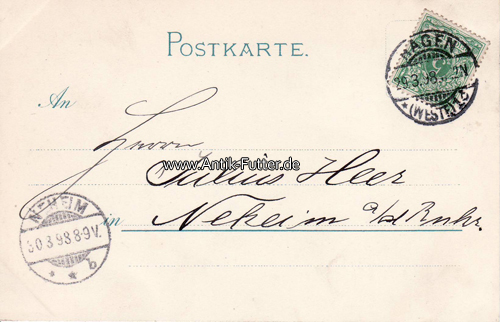 POSTKARTE.
HAGEN
29.3.98.
(WESTF.) 2
An
Herrn
www.Antik-Futter.de
Julius Heer
in Neheim a/d Ruhr.
NEHEIM
30.3.98.8-9V.
* * b